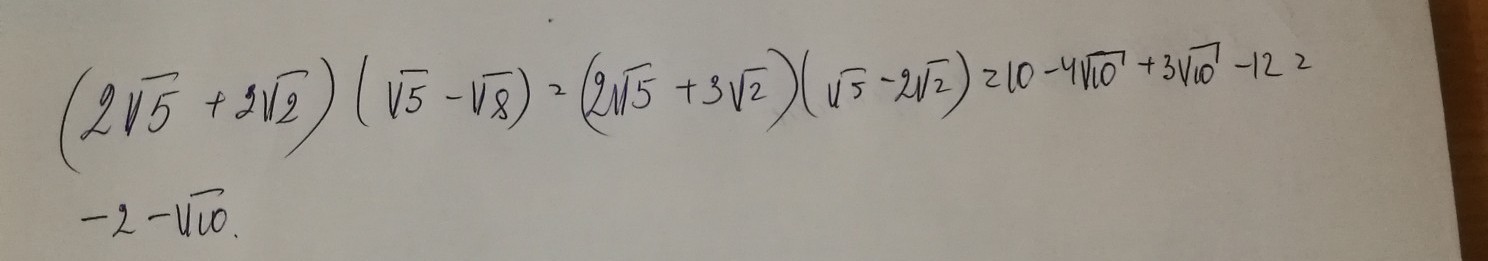 (2√5 + 3√2)(√5 - √8) = (2√5 + 3√2)(√5 - 2√2) = 10 - 4√10 + 3√10 - 12 =
-2 - √10.